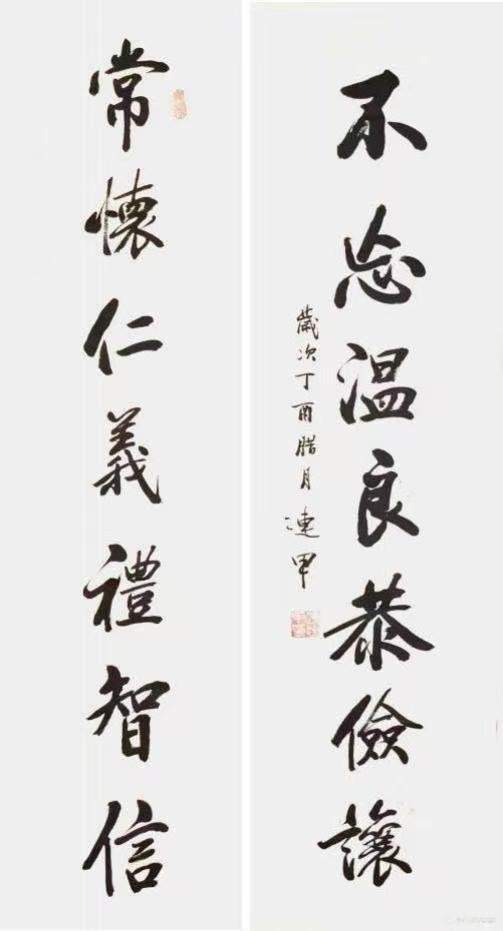 不忘温良恭儉讓
歲次丁酉腊月連甲
常懷仁義禮智信